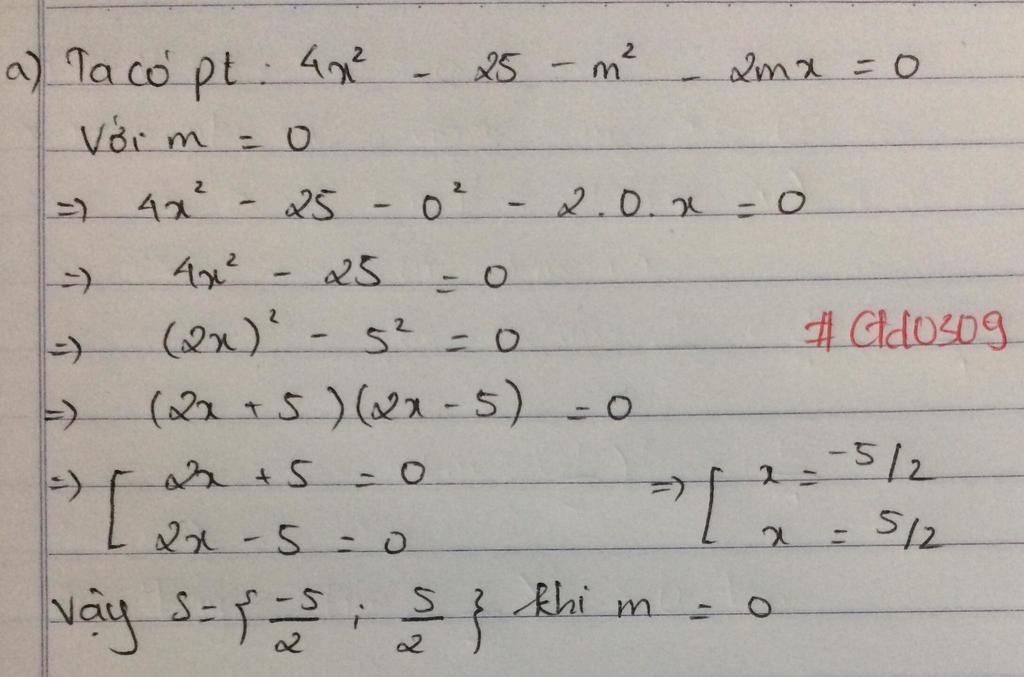 a) Ta có pt : 4x² - 25 - m² - 2mx = 0
Với m = 0
=> 4x² - 25 - 0² - 2.0.x = 0
=> 4x² - 25 = 0
=> (2x)² - 5² = 0
#Ctd0309
=> (2x + 5)(2x - 5) = 0
=> [ 2x + 5 = 0 => [ x = -5/2
2x - 5 = 0 x = 5/2
Vậy S = { -5/2 ; 5/2 } khi m = 0